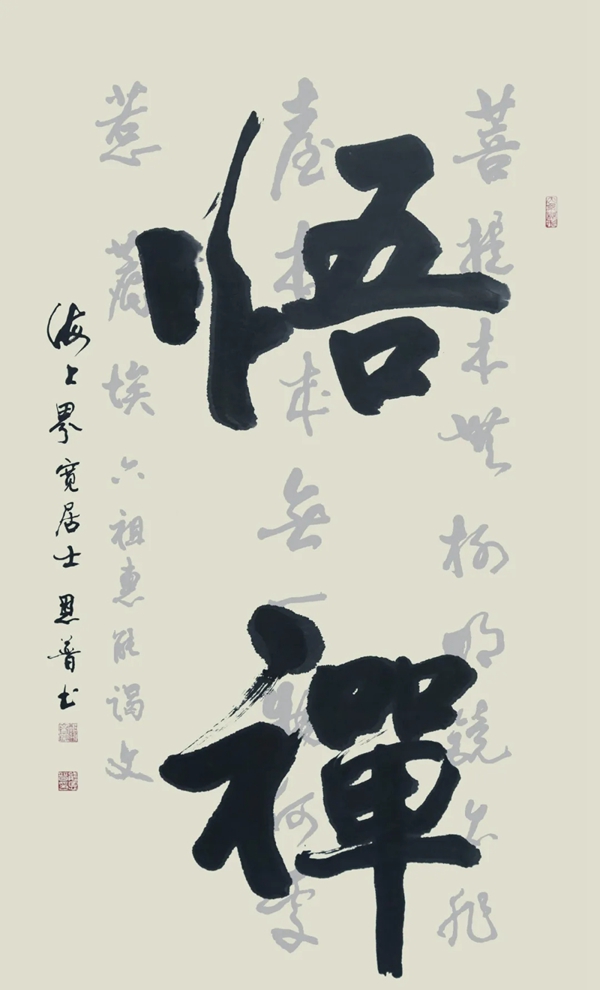 悟禪
菩提本無樹明鏡亦非
臺本来無一物何處
惹塵埃 六祖惠能謁文
海上寬居士普书